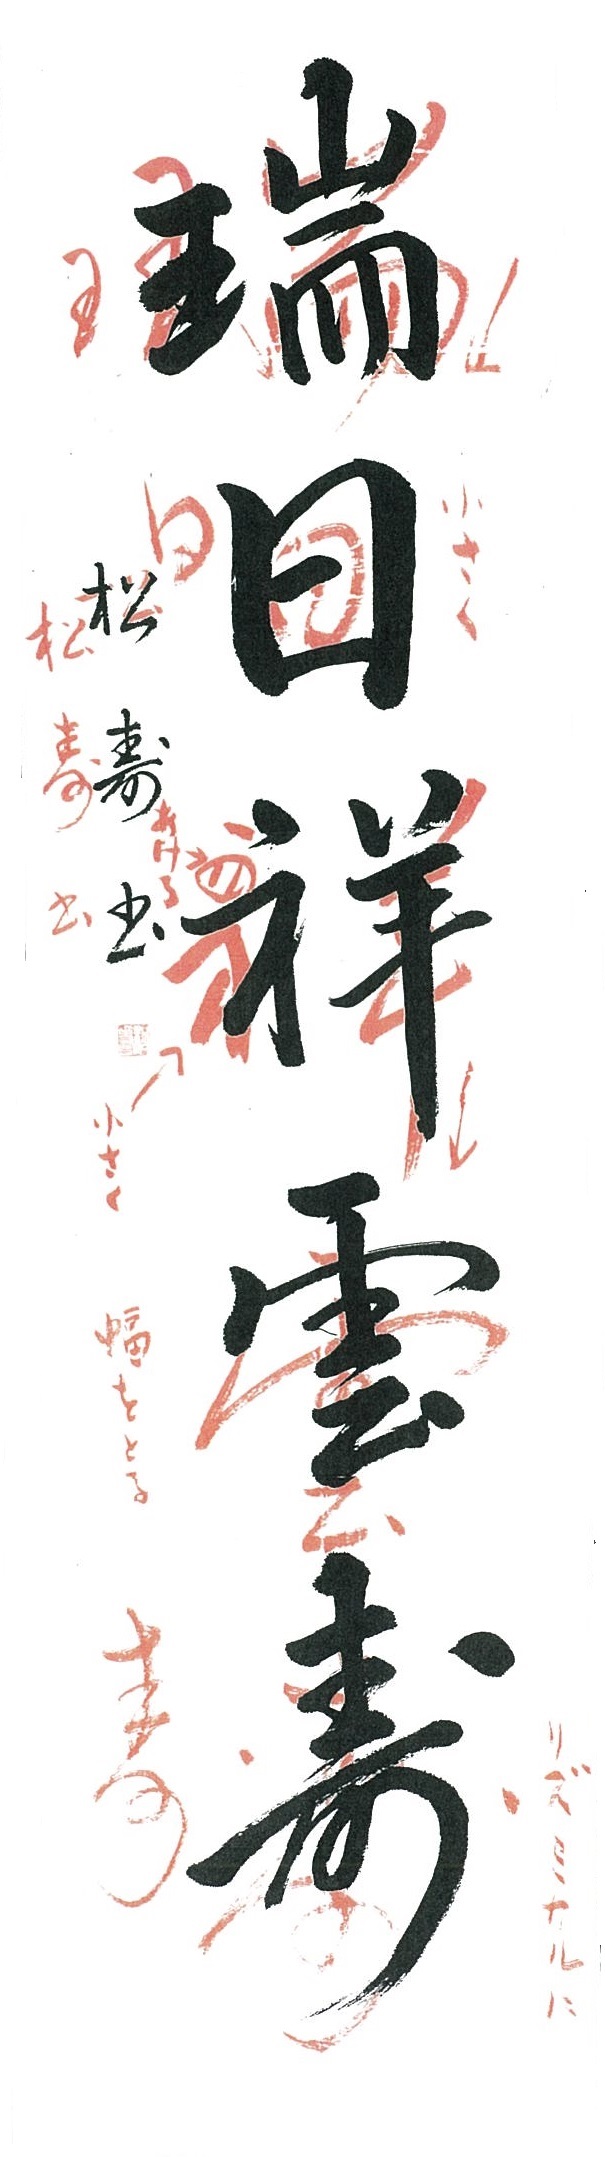 瑞日祥雲寿
松寿書
小さく
あける
松寿書
小さく
幅をとる
寿
リズミカルに